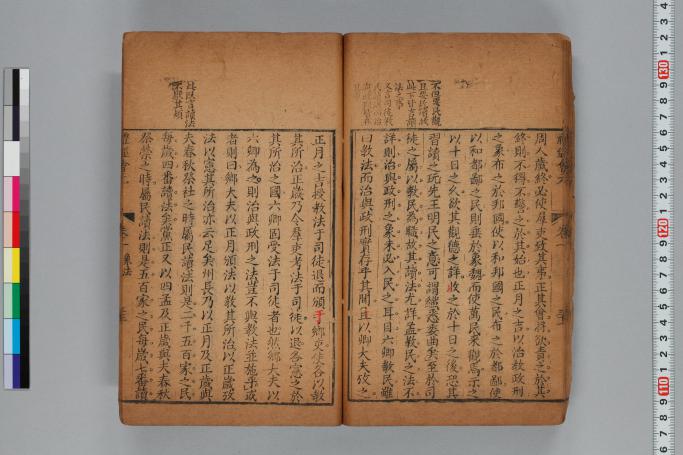 周人歲終必使羣吏致其事正其會將欲責之於其
終則不得不警之於其始也正月之吉以治教政刑
之象布之於邦國使以和邦國之民布之於都鄙使
以和都鄙之民則垂於象魏而使萬民来觀焉示之
以十日之久欲其觀德之詳收之於十日之後恐其
習讀之玩先王明民之意可謂纎悉委曲矣至於司
徒之屬以教民為職故其讀法尤詳盖教民之法不
詳則治與政刑之象未必入民之耳目六卿教民雖
曰教法而治與政刑實存乎其間且以卿大夫攷之
不但要民觀
且要民讀故
此下廿言讀
法之事
正月之吉授教法于司徒退而頒于鄉吏使各以教
其所治正歲乃令羣吏考法于司徒以退各憲之於
其所治之國六卿固受法于司徒者也然鄉大夫以
六卿為之則治與政刑之法豈不與教法並施乎或
者則曰鄉大夫以正月頒法以教其所治以正歲攷
法以憲其所治亦云足矣州長乃以正月及正歲與
夫春秋祭社之時屬民讀法則是二千五百家之民
每歲四番讀法矣黨正又以四孟及正歲與夫春秋
祭禜之時屬民讀法則是五百家之民每歲七番讀
此以言讀法
卷一
象法